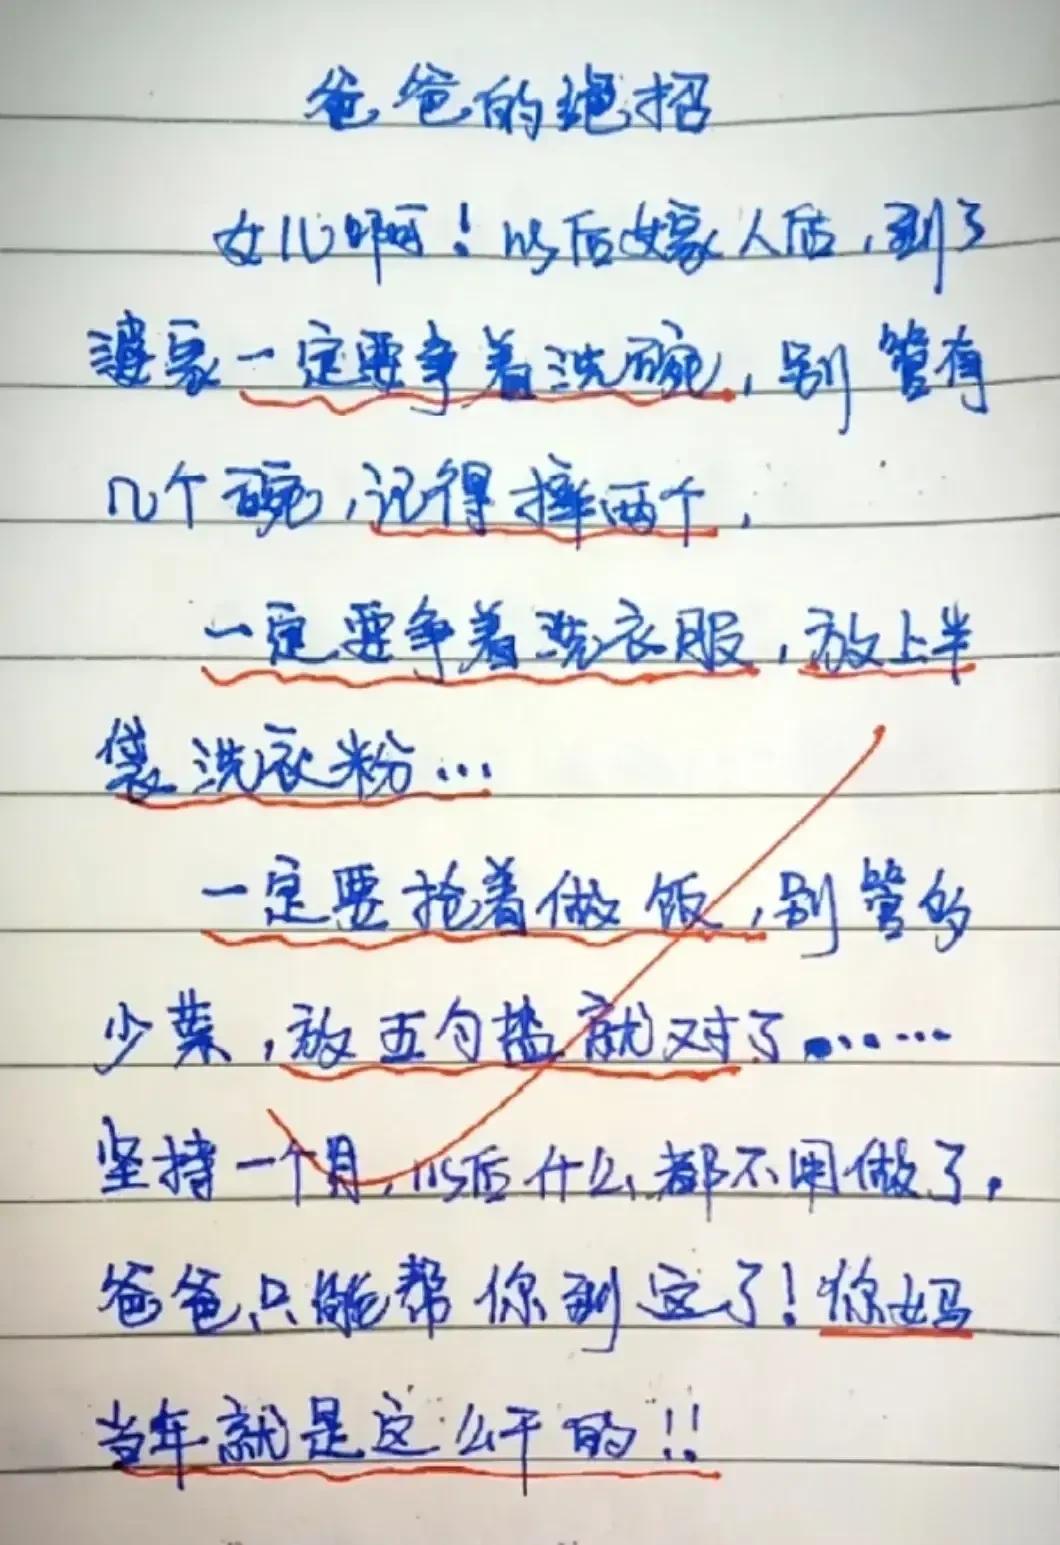 爸爸的绝招
女儿啊！以后嫁人后，到了
婆家一定要争着洗碗，别管有
几个碗，记得摔两个，
一定要争着洗衣服，放上半
袋洗衣粉…
一定要抢着做饭，别管多
少菜，放五勺盐就对了……
坚持一个月，以后什么都不用做了，
爸爸只能帮你到这了！你妈
当年就是这么干的！！